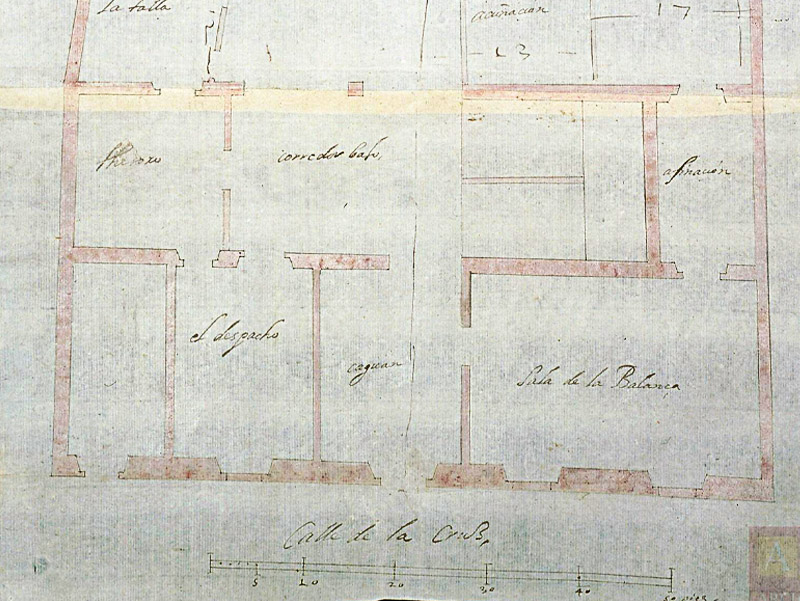 La talla
acuñacion
17
13
corredor baxo,
afinación
el despacho
caguan
Sala de la Balança
Calle de la Crus,
5 10 20 30 40 50 pies.
A